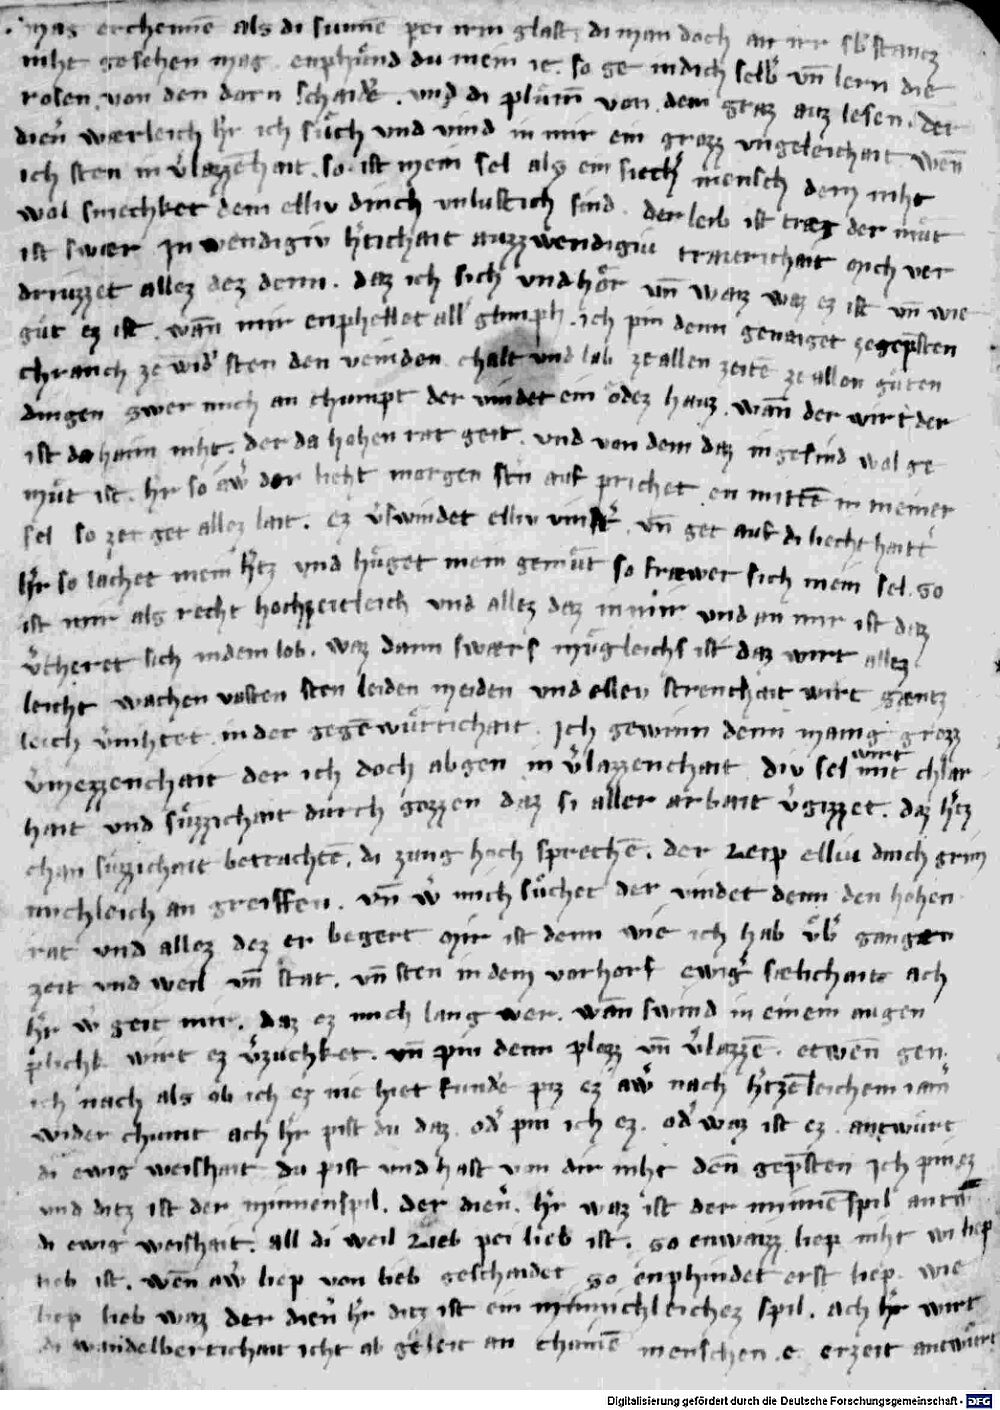 mag erchennē als di sunne pei irm glast di man doch an irr sb̾stantz
niht gesehen mag. enphind du mein ie. so ge in dich selb̾ vn̄ lern die
rosen von den dorn schaidē. und di plům̄ von dem graz auz lesen. der
dien̾ wærleich h̾r ich sůch und vind in mir ein grozz vngeleichait wen̄
ich sten in v̾lazzēhait. so ist mein sel als ein siech̾ mensch dem niht
wol smechket dem elliv dinch vnlustich sind. der leib ist træg der můt
ist swær Inwendigiv h̾tichait auzzwendigiu traurichait mich ver
driuzzet allez dez denn. daz ich sich und hör vn̄ waiz waz ez ist vn̄ wie
gůt ez ist. wan̄ mir enphellet all̾ glimph. ich pin denn genaiget ze gep̄sten
chranch ze wid̾sten den veinden chalt und lab ze allen zeitē ze allen gůten
dingen swer mich an chumpt der vindet ein ödez hauz. wan̄ der wirt der
ist da haim niht. der da hohen rat geit. und von dem daz ingesind wol ge
můt ist. h̾r so aw̾ der lieht morgen st̾n auf prichet en mittē in meiner
sel so zer get allez lait. ez v̾swindet elliv vinst̾ vn̄ get auf di liecht hait̾
h̾r so lachet mein h̾tz und hůget mein gemůt so fræwet sich mein sel. so
ist mir als recht hochzeitleich und allez daz in mir und an mir ist daz
v̾cheret sich in dein lob. waz dann swærs můgleichs ist daz wirt allez
leicht wachen vasten sten leiden meiden und elleu strenchait wirt gæntz
leich v̾nihtet in der gegēwürtichait. Ich gewinn denn manig grozz
v̾mezzenchait der ich doch abgen in v̾lazzenchait div sel wirt mit chlar
hait und sůzzichait durch gozzen daz si aller arbait v̾gizzet. daz h̾tz
chan sůzzichait betrachtē. di zung hoch sprechē. der Leip elliu dinch grim
michleich an greiffen. vn̄ w̾ mich sůchet der vindet denn den hohen
rat und allez dez er begert mir ist denn wie ich hab v̾b̾ gangen
zeit und weil vn̄ stat. vn̄ sten in dem vorhorf ewig̾ sælichait ach
h̾r w̾ geit mir. daz ez mich lang wer. wan swind in einem augen
plichk wirt ez v̾zuchket. vn̄ pin denn plozz vn̄ v̾lazzē. etwen̄ gen
ich nach als ob ich ez nie hiet fundē piz ez aw̾ nach h̾tzēleichem iam̾
wider chumt ach h̾r pist du daz. od̾ pin ich ez. od̾ waz ist ez. antwürt
di ewig weishait du pist und hast von dir niht den̄ gep̄sten Ich pin ez
und ditz ist der minnenspil. der dien̾. h̾r waz ist der minnēspil antw̾
di ewig weishait. all di weil Lieb pei lieb ist. so enwaizz liep niht wi liep
lieb ist. wen̄ aw̾ liep von lieb geschaidet so enphindet erst liep. wie
liep lieb waz der dien̾ h̾r ditz ist ein minnichleichez spil. ach h̾r wirt
di wandelberichait icht ab geleit an chainē menschen. e. erzeit antwürt
Digitalisierung gefördert durch die Deutsche Forschungsgemeinschaft - DFG